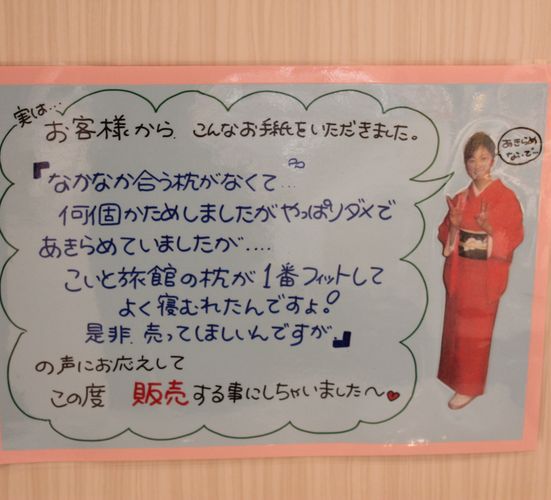 実は…
お客様から、こんなお手紙をいただきました。
『なかなか合う枕がなくて…
何個かためしましたがやっぱりダメで
あきらめていましたが‥‥
こいと旅館の枕が1番フィットして
よく寝むれたんですょ!
是非、売ってほしいんですが。』
の声にお応えして
この度 販売する事にしちゃいました〜♥
あきらめ
ないでー